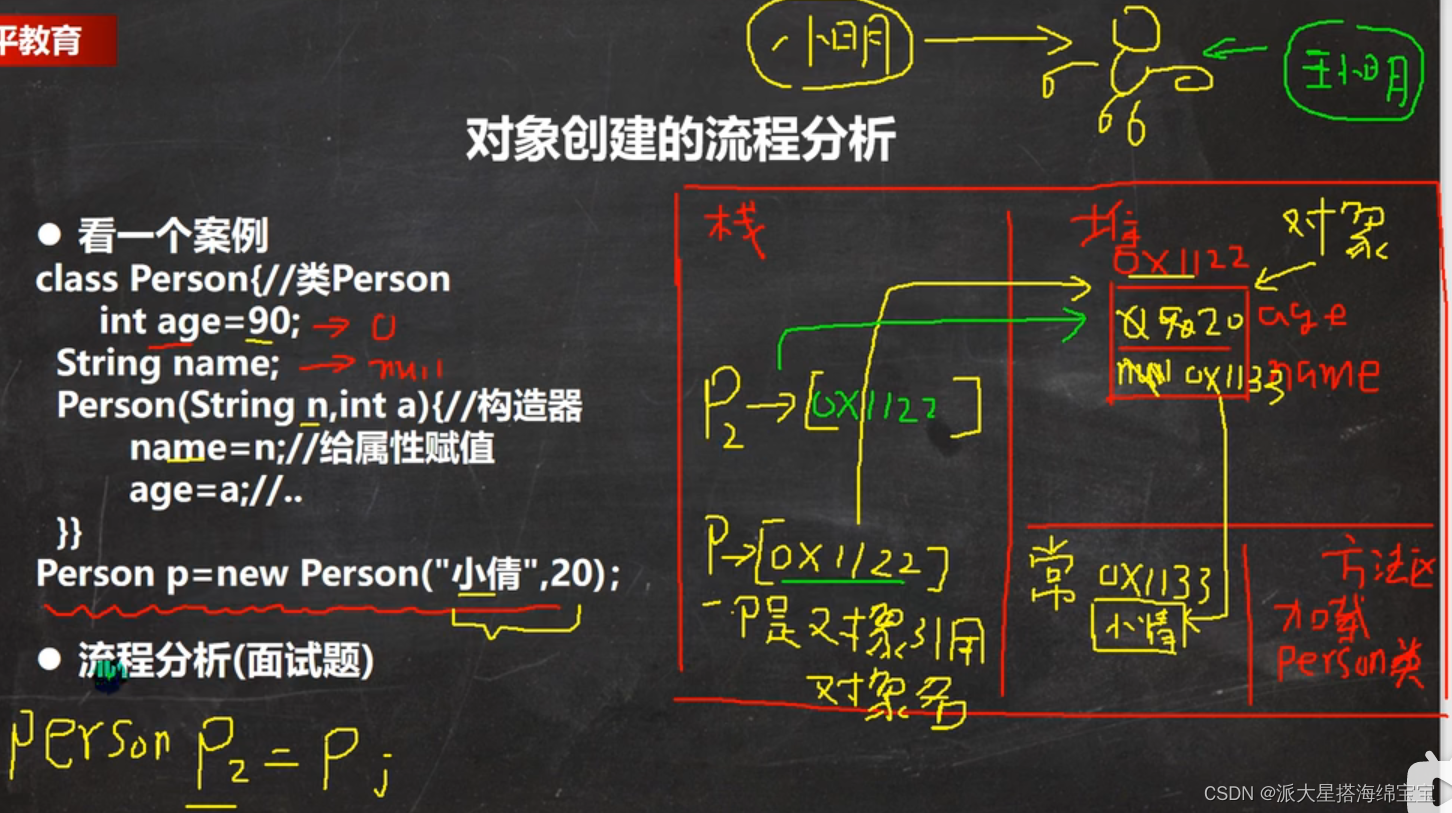 平教育
小明
王小明
对象创建的流程分析
● 看一个案例
class Person{//类Person
int age=90; → 0
String name; → null
Person(String n,int a){//构造器
name=n;//给属性赋值
age=a;//..
}}
Person p=new Person("小倩",20);
● 流程分析(面试题)
Person P2 = P;
栈
P2→[0X1122]
P→[0X1122]
P是对象引用
对象名
堆
对象
0X1122
0 90 20 age
null 0X1133 name
常
0X1133
小倩
方法区
加载
Person类
CSDN @派大星搭海绵宝宝